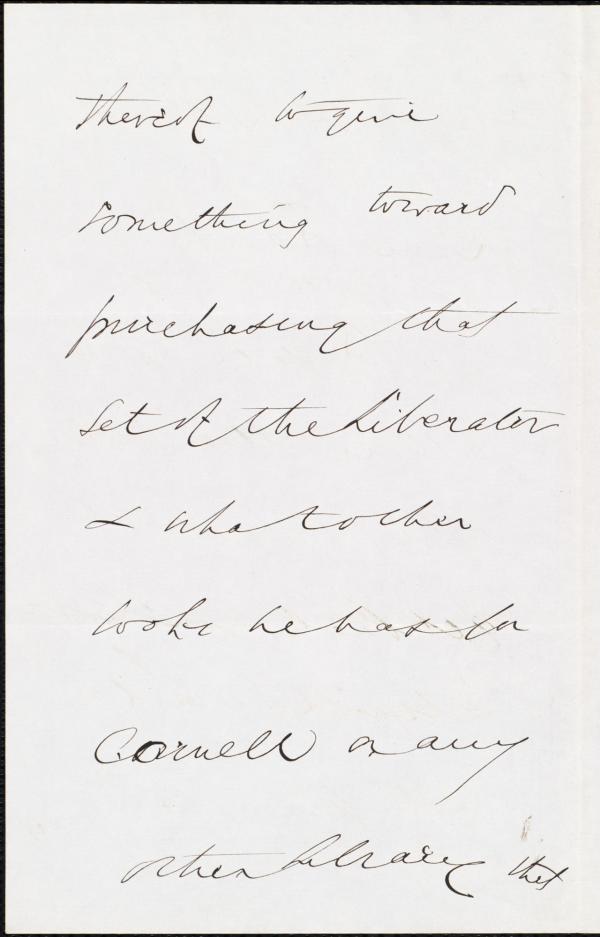 thereof to give
something toward
purchasing that
set of the Liberator
& what other
books he has for
Cornell or any
other Library that